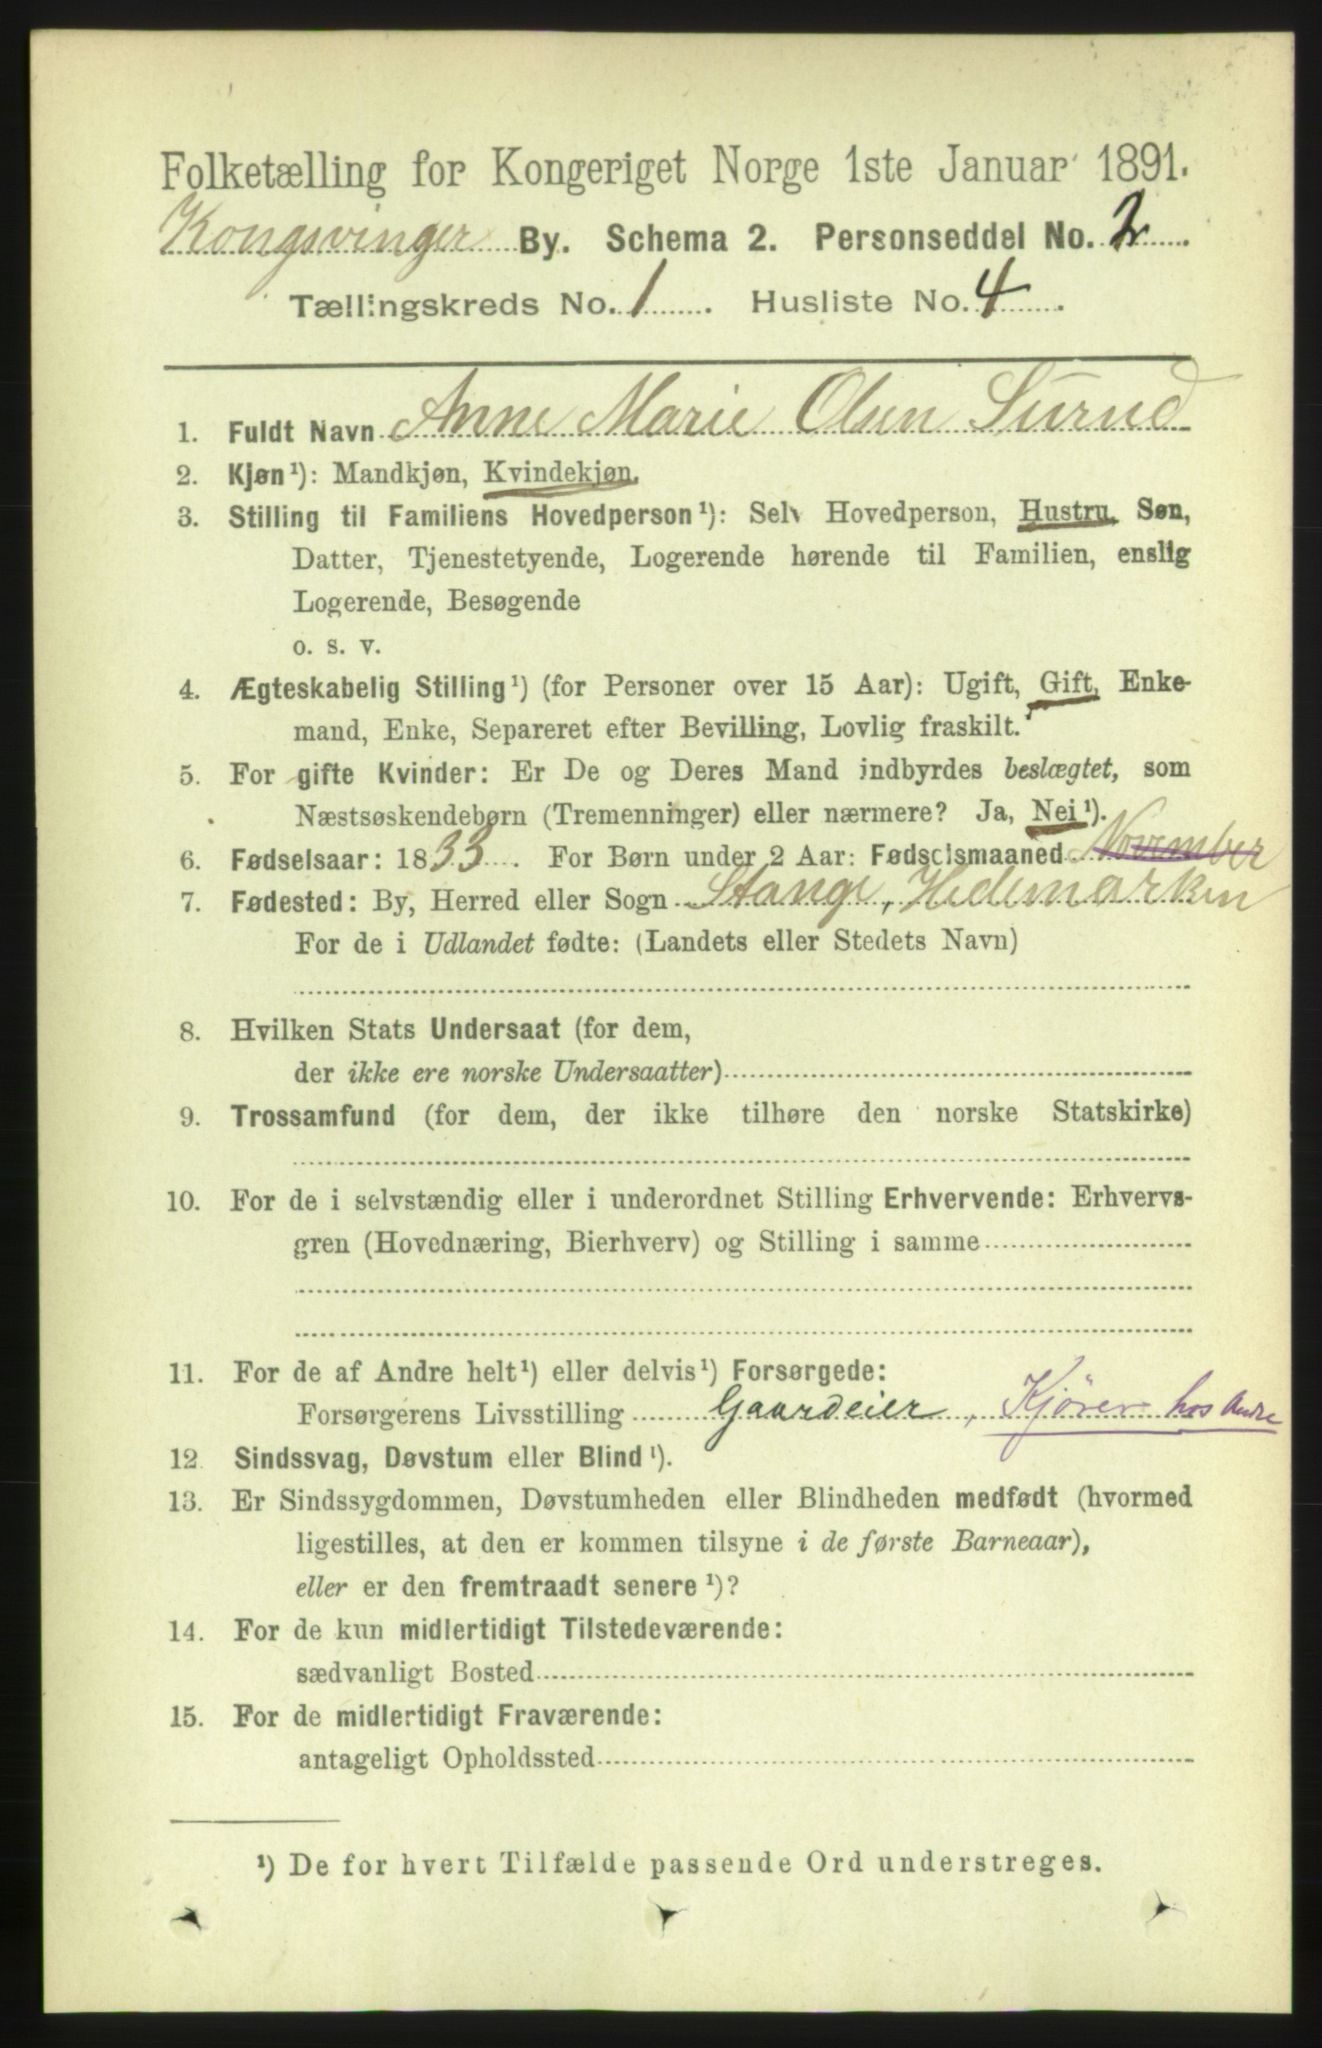 Folketælling for Kongeriget Norge 1ste Januar 1891.
Kongsvinger By. Schema 2. Personseddel No. 2
Tællingskreds No. 1. Husliste No. 4.
1. Fuldt Navn Anne Marie Olsen Surud
2. Kjøn¹): Mandkjøn, Kvindekjøn.
3. Stilling til Familiens Hovedperson¹): Selv Hovedperson, Hustru, Søn,
Datter, Tjenestetyende, Logerende hørende til Familien, enslig
Logerende, Besøgende
o. s. v.
4. Ægteskabelig Stilling¹) (for Personer over 15 Aar): Ugift, Gift, Enke-
mand, Enke, Separeret efter Bevilling, Lovlig fraskilt.
5. For gifte Kvinder: Er De og Deres Mand indbyrdes beslægtet, som
Næstsøskendebørn (Tremenninger) eller nærmere? Ja, Nei¹).
6. Fødselsaar: 1833. For Børn under 2 Aar: Fødselsmaaned November
7. Fødested: By, Herred eller Sogn Stange, Hedemarken
For de i Udlandet fødte: (Landets eller Stedets Navn)
8. Hvilken Stats Undersaat (for dem,
der ikke ere norske Undersaatter)
9. Trossamfund (for dem, der ikke tilhøre den norske Statskirke)
10. For de i selvstændig eller i underordnet Stilling Erhvervende: Erhvervs-
gren (Hovednæring, Bierhverv) og Stilling i samme
11. For de af Andre helt¹) eller delvis¹) Forsørgede:
Forsørgerens Livsstilling Gaardeier, Kjører hos Andre
12. Sindssvag, Døvstum eller Blind¹).
13. Er Sindssygdommen, Døvstumheden eller Blindheden medfødt (hvormed
ligestilles, at den er kommen tilsyne i de første Barneaar),
eller er den fremtraadt senere¹)?
14. For de kun midlertidigt Tilstedeværende:
sædvanligt Bosted
15. For de midlertidigt Fraværende:
antageligt Opholdssted
¹) De for hvert Tilfælde passende Ord understreges.